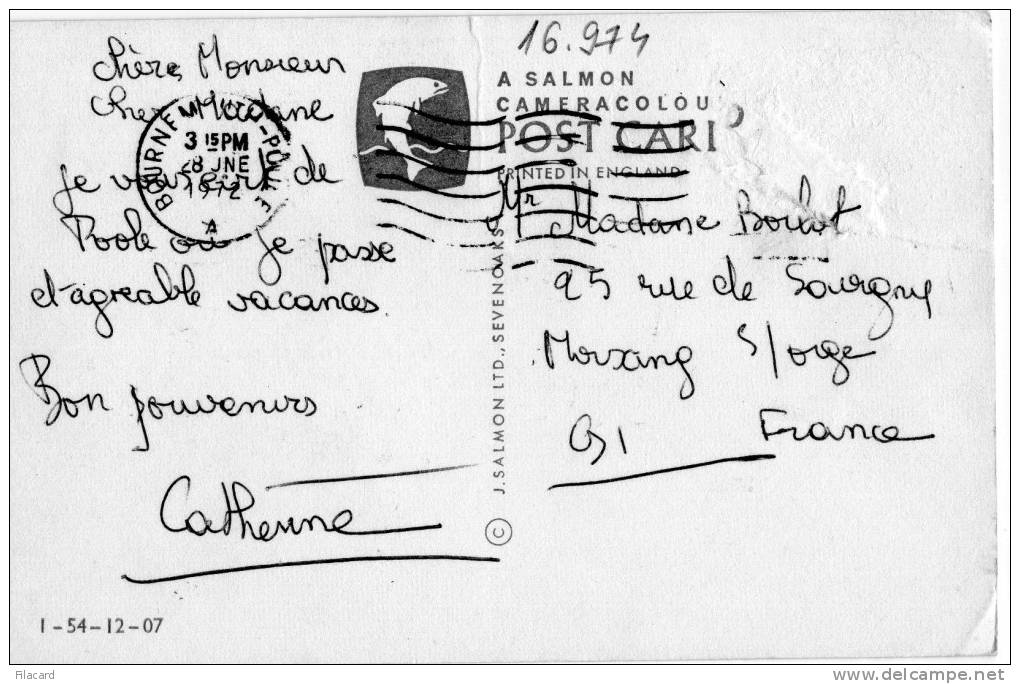 16.974
Chère Monsieur
Cher Madame
Je vous écris de
Poole où je passe
d'agréable vacances.
Bon souvenirs
Catherine
1-54-12-07
BOURNEMOUTH-POOLE
3 15PM
28 JNE
1972
A
A SALMON
CAMERACOLOU
POST CARD
PRINTED IN ENGLAND
© J. SALMON LTD., SEVENOAKS
Mr Madame
95 rue de Savigny
Morsang s/orge
91 France
Filacard
www.delcampe.net